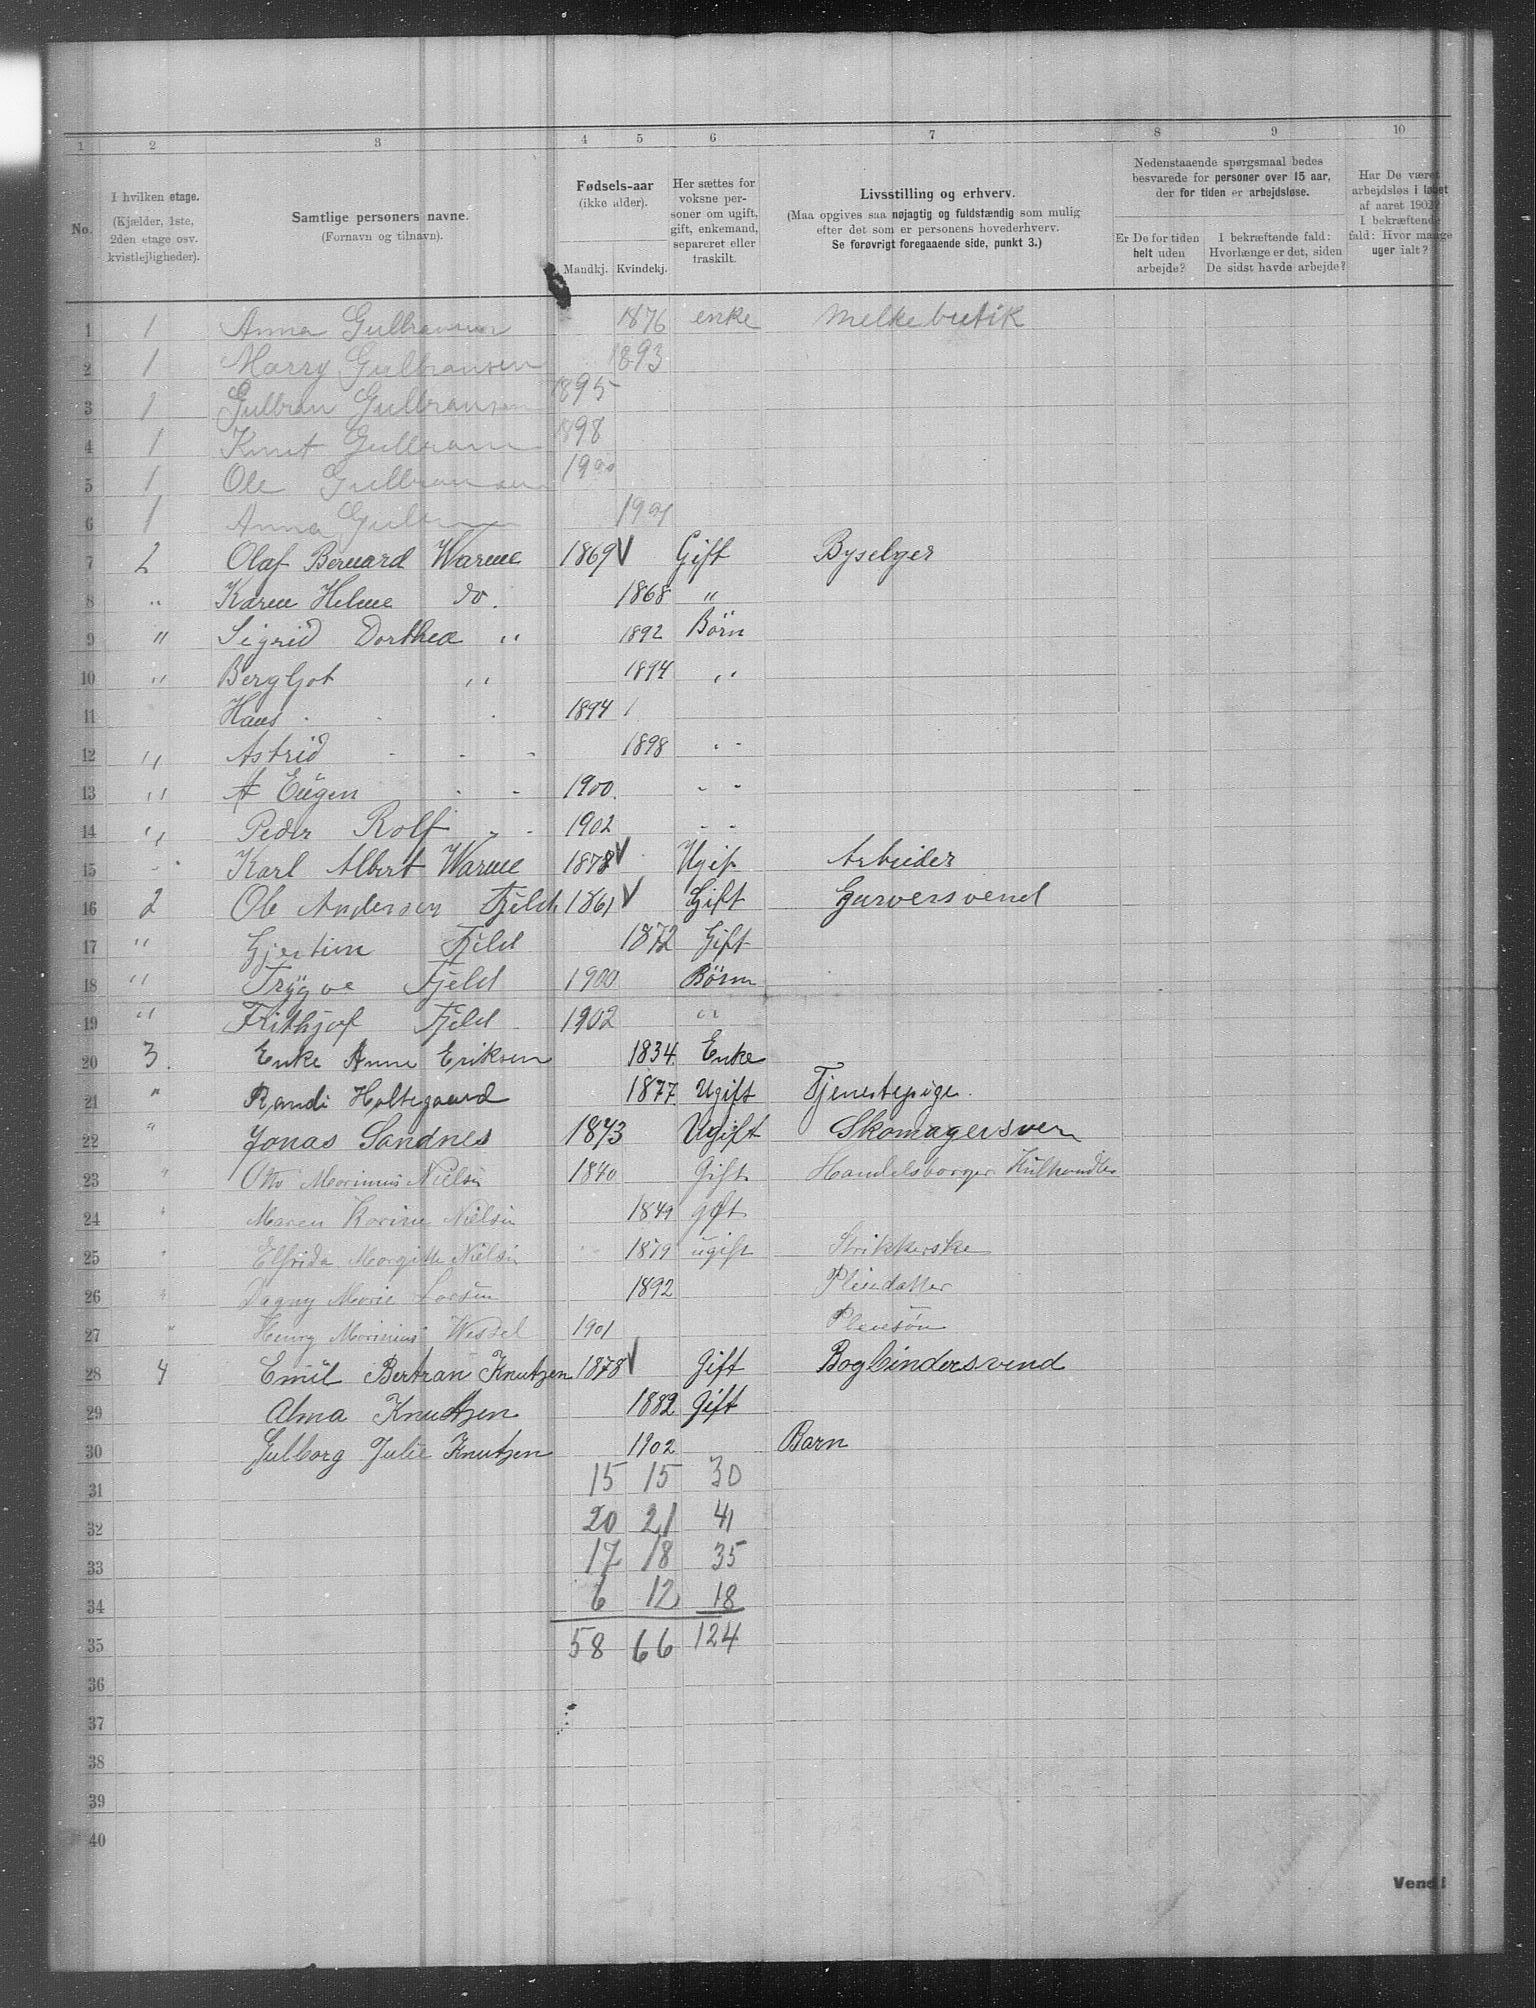 1 2 3 4 5 6 7 8 9 10
No.
I hvilken etage. (Kjælder, 1ste, 2den etage osv. kvistlejligheder).
Samtlige personers navne. (Fornavn og tilnavn).
Fødsels-aar (ikke alder).
Mandkj. Kvindekj.
Her sættes for voksne personer om ugift, gift, enkemand, separeret eller fraskilt.
Livsstilling og erhverv.
(Maa opgives saa nøjagtig og fuldstændig som mulig efter det som er personens hovederhverv. Se forøvrigt foregaaende side, punkt 3.)
Nedenstaaende spørgsmaal bedes besvarede for personer over 15 aar, der for tiden er arbejdsløse.
Er De for tiden helt uden arbejde?
I bekræftende fald: Hvorlænge er det, siden De sidst havde arbejde?
Har De været arbejdsløs i løbet af aaret 1902? I bekræftende fald: Hvor mange uger ialt?
1 1 Anna Gulbransen 1876 enke Melkebutik
2 1 Marry Gulbransen 1893
3 1 Gulbran Gulbransen 1895
4 1 Knut Gulbransen 1898
5 1 Ole Gulbransen 1900
6 1 Anna 1901
7 2 Olaf Bernard Warme 1869 V Gift Byselger
8 " Karen Helme do. 1868 "
9 " Sigrid Dorthea " 1892 Börn
10 " Bergljot " 1894 "
11 Hans 1894
12 " Astrid 1898 "
13 " A Eügen 1900 "
14 " Peder Rolf " 1902 "
15 " Karl Albert Warme 1878 V Ugif Arbeider
16 2 Ole Andersen Fjeld 1861 V Gift Garversvend
17 " Gjertine Fjeld 1872 Gift
18 " Trÿgve Fjeld 1900 Börn
19 " Frithjof Fjeld 1902 "
20 3. Enke Anne Eriksen 1834. Enke
21 " Randi Holtegaard 1877 Ugift Tjenestepige.
22 " Jonas Sandnes 1873 Ugift Skomagersven
23 " Otto Marinius Nielsen 1840 Gift Handelsborger Kulhandler
24 " Maren Karine Nielsen 1849 gift
25 " Elfrida Margithe Nielsen 1879 ugift Strikkerske
26 " Dagny Marie Larsen 1892 Pleiedatter
27 " Henry Marinius Wessel 1901 Pleiesön
28 4 Emil Bertran Knutzen 1878 V Gift Bogbindersvend
29 Alma Knutzen 1882 Gift
30 Gulborg Julie Knutzen 1902 Barn
31 15 15 30
32 20 21 41
33 17 18 35
34 6 12 18
35 58 66 124
36
37
38
39
40
Vend!